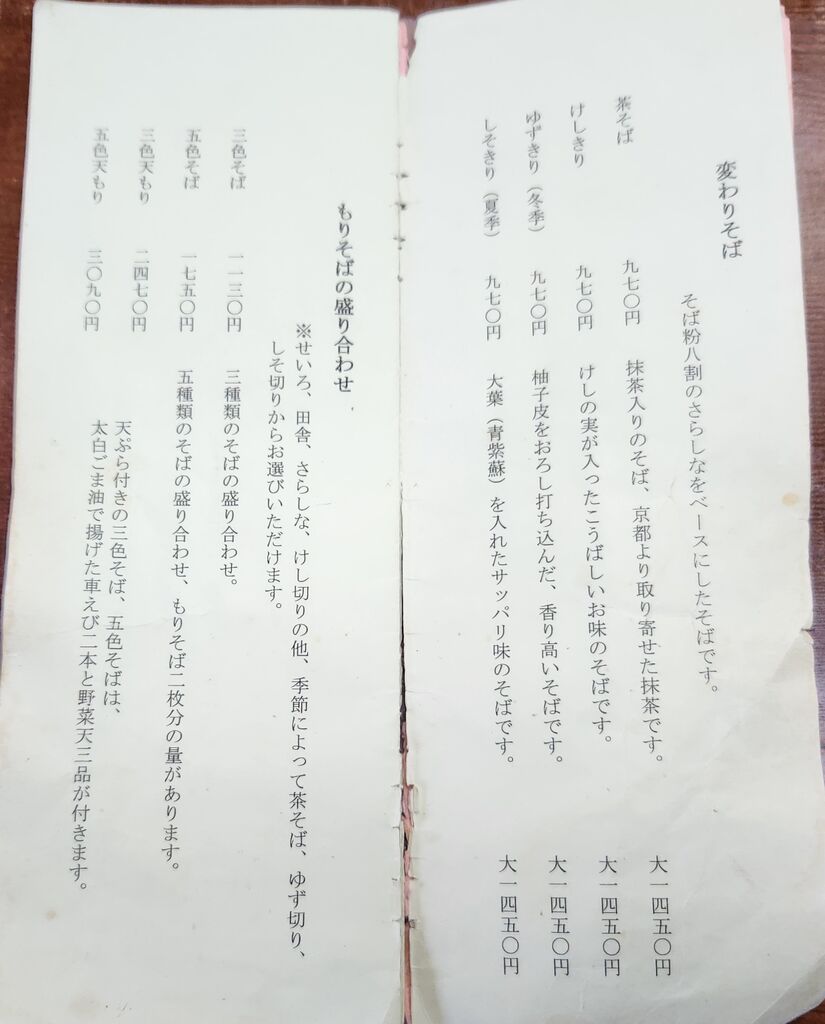 変わりそば
そば粉八割のさらしなをベースにしたそばです。
茶そば 九七〇円 抹茶入りのそば、京都より取り寄せた抹茶です。 大一四五〇円
けしきり 九七〇円 けしの実が入ったこうばしいお味のそばです。 大一四五〇円
ゆずきり（冬季） 九七〇円 柚子皮をおろし打ち込んだ、香り高いそばです。 大一四五〇円
しそきり（夏季） 九七〇円 大葉（青紫蘇）を入れたサッパリ味のそばです。 大一四五〇円
もりそばの盛り合わせ
※せいろ、田舎、さらしな、けし切りの他、季節によって茶そば、ゆず切り、
しそ切りからお選びいただけます。
三色そば 一一三〇円 三種類のそばの盛り合わせ。
五色そば 一七五〇円 五種類のそばの盛り合わせ、もりそば二枚分の量があります。
三色天もり 二四七〇円
五色天もり 三〇九〇円
天ぷら付きの三色そば、五色そばは、
太白ごま油で揚げた車えび二本と野菜天三品が付きます。